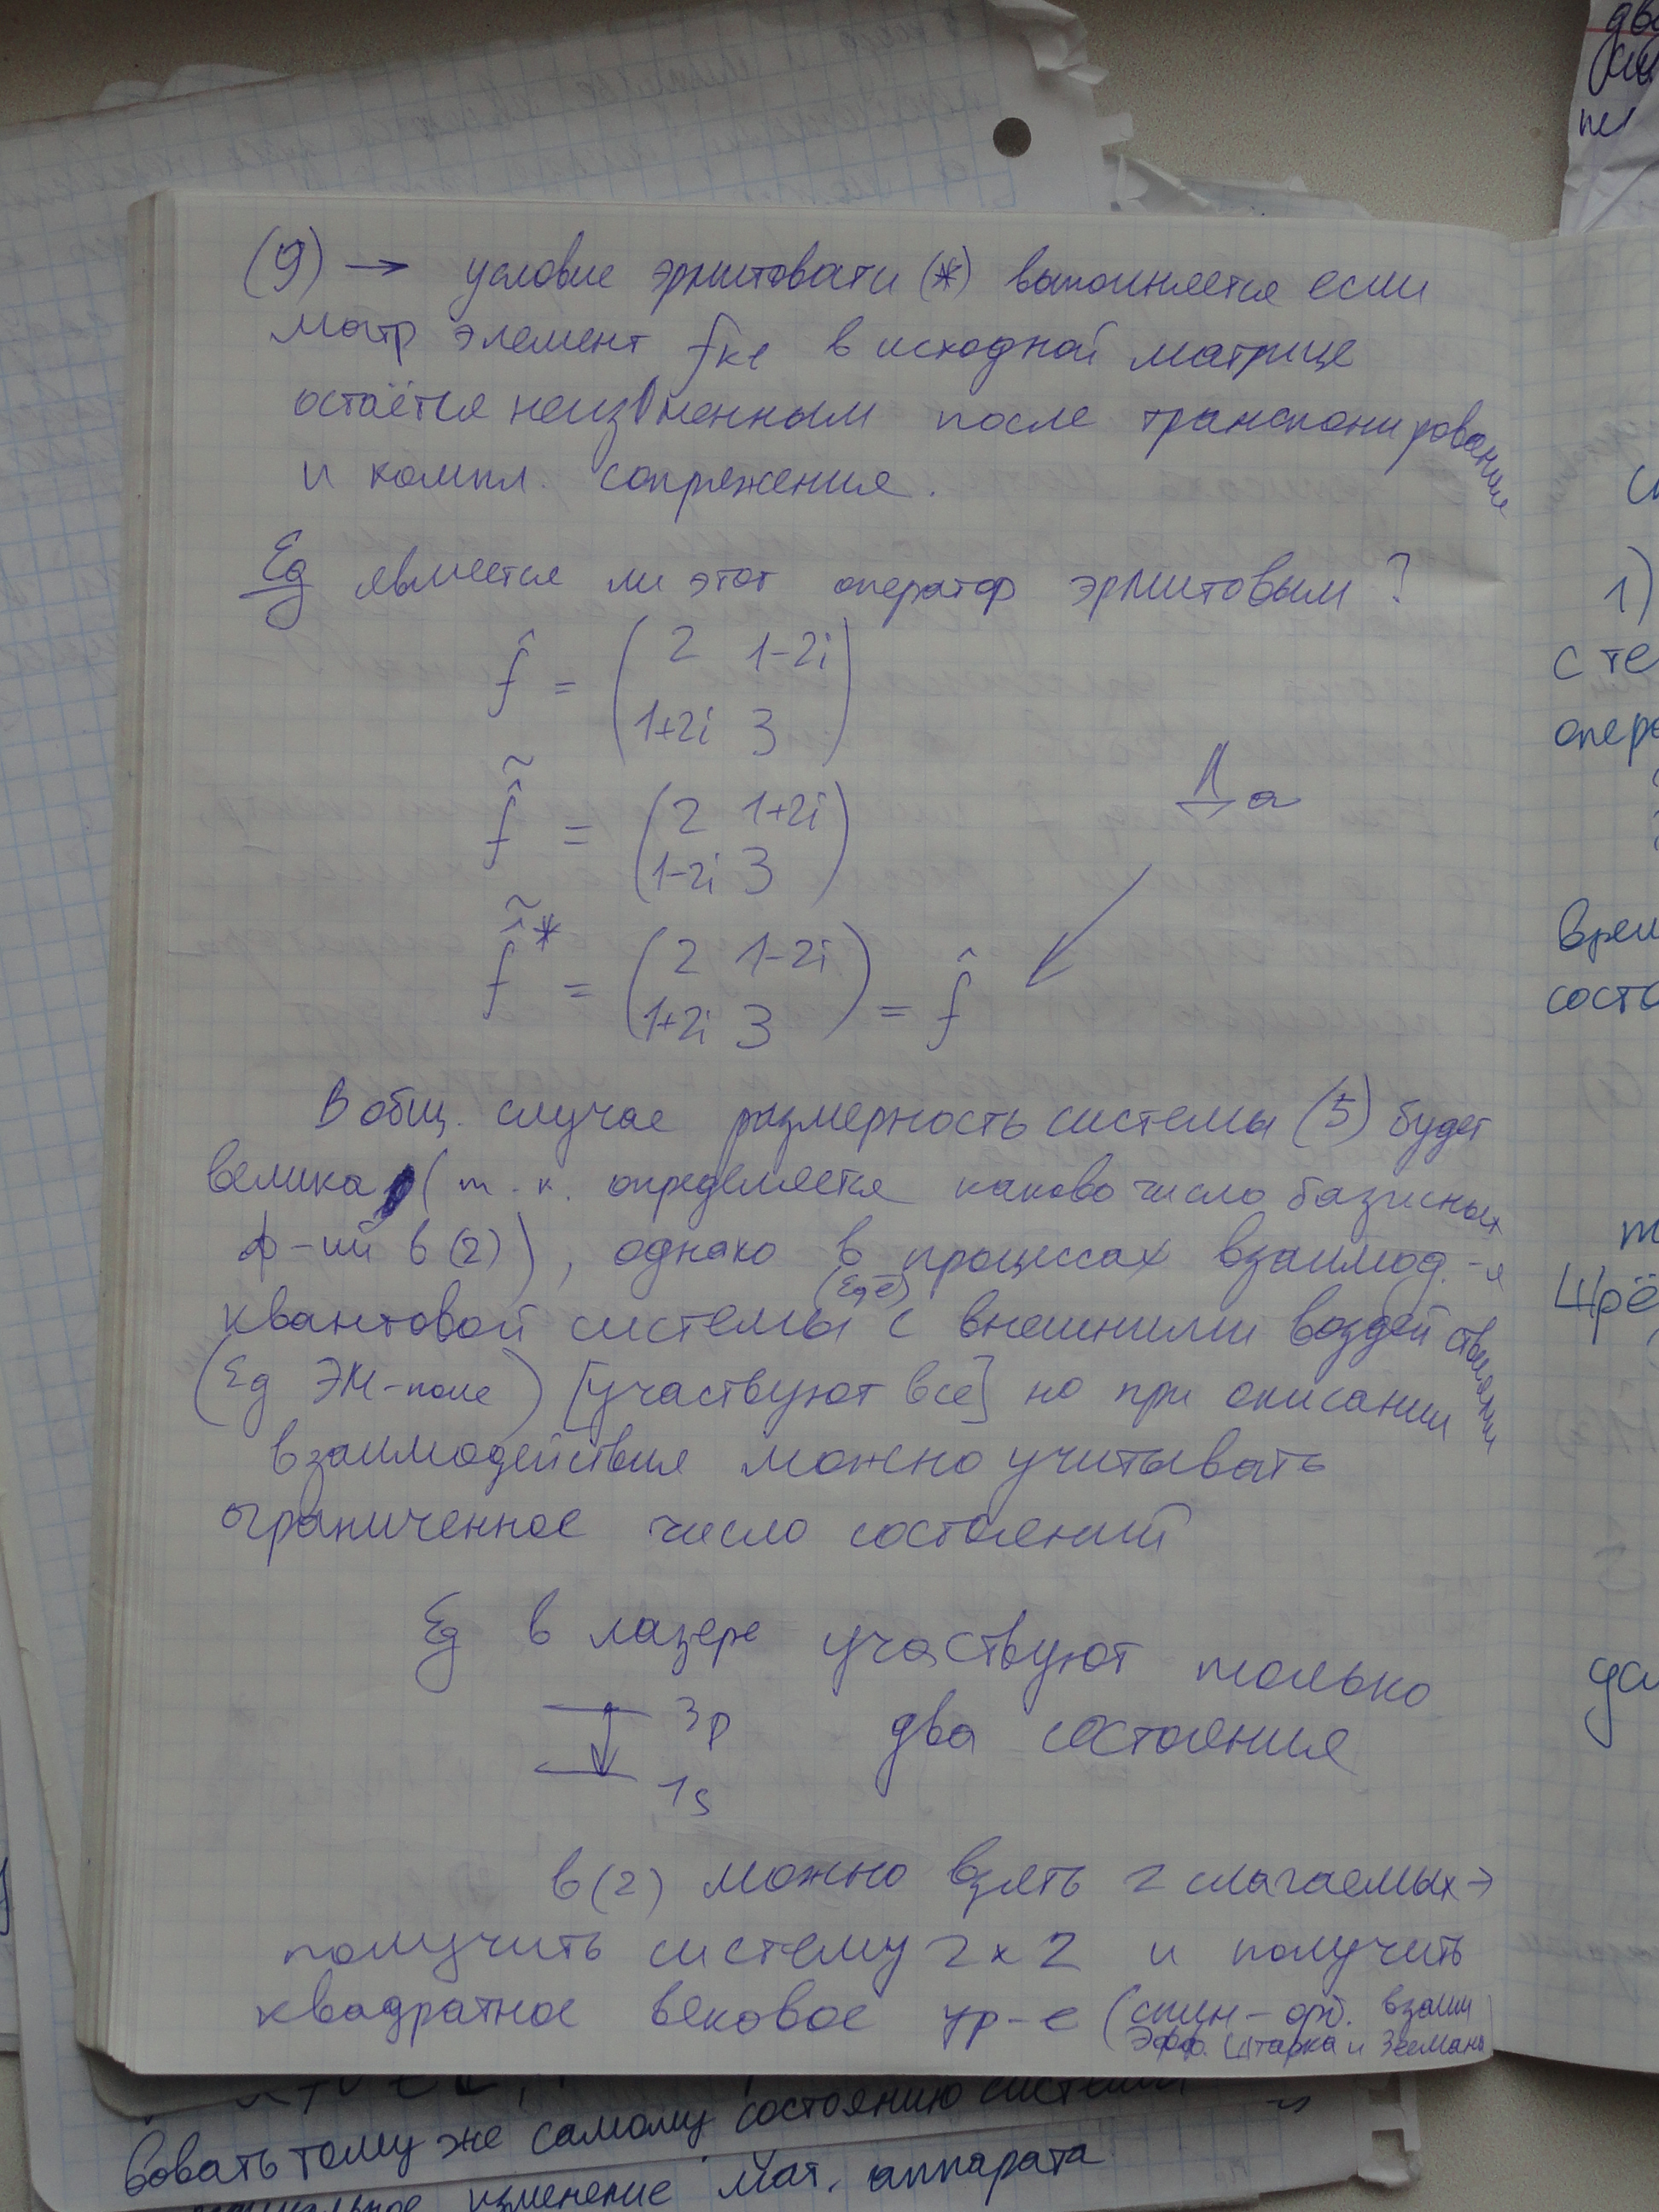 (9) → условие эрмитовати (*) выполняется если
матр элемент fке в исходной матрице
остаётся неизменным после транспонирования
и компл. сопряжения.
Eg является ли этот оператор эрмитовым?
f̂ = (2 1-2i
1+2i 3)
f̂̃ = (2 1+2i
1-2i 3)
Да
f̂̃* = (2 1-2i
1+2i 3) = f̂ ✓
В общ. случае размерность системы (5) будет
велика (т.к. определяется каково число базисных
ф-ий в (2)), однако в процессах взаимод.-я
(Eg ē)
квантовой системы с внешними воздействиями
(Eg ЭМ-поле) [участвуют все] но при описании
взаимодействия можно учитывать
ограниченное число состояний
Eg в лазере участвуют только
3p два состояния
1s
в (2) можно взять 2 слагаемых →
получить систему 2x2 и получить
квадратное вековое ур-е (спин-орб. взаим
Эфф. Штарка и Зеемана
1)
с те
опера
врем
состо
Шрё
вовать тому же самому состоянию системы
изменение мат. аппарата